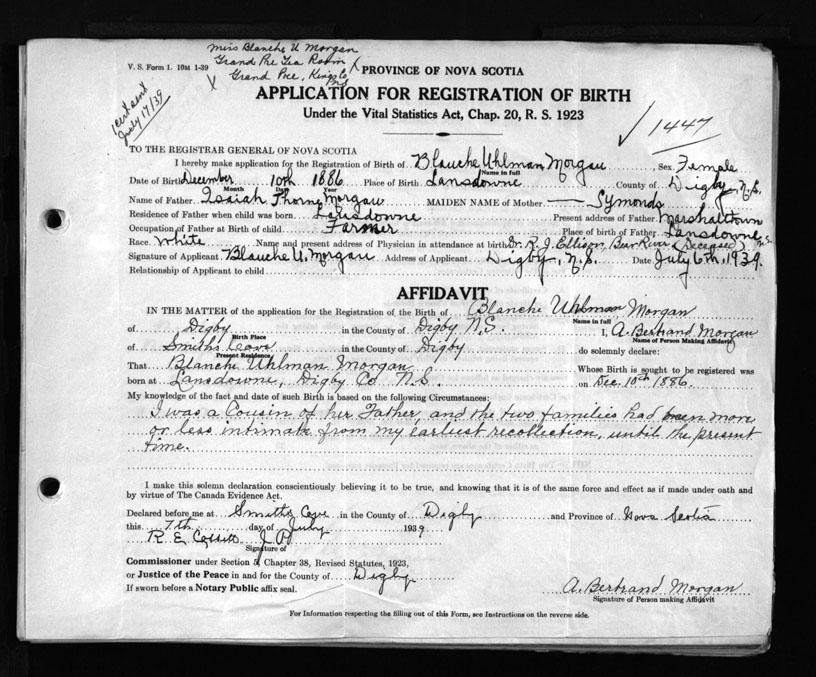 Miss Blanche U Morgan
V. S. Form 1. 10M 1-39 Grand Pre Tea Room
X Grand Pre, Kings Co NS
PROVINCE OF NOVA SCOTIA
cert sent July 17/39
APPLICATION FOR REGISTRATION OF BIRTH
Under the Vital Statistics Act, Chap. 20, R. S. 1923
1447
TO THE REGISTRAR GENERAL OF NOVA SCOTIA
I hereby make application for the Registration of Birth of Blanche Uhlman Morgan Sex Female
Name in full
Date of Birth December 10th 1886 Place of Birth Lansdowne County of Digby, N.S.
Month Day Year
Name of Father Isaiah Thorne Morgan MAIDEN NAME of Mother — Symonds
Residence of Father when child was born Lansdowne Present address of Father Marshalltown
Occupation of Father at Birth of child Farmer Place of birth of Father Lansdowne N.S.
Race White Name and present address of Physician in attendance at birth Dr. R. J. Ellison, Bear River (Deceased)
Signature of Applicant Blanche U. Morgan Address of Applicant Digby, N.S. Date July 6th, 1939.
Relationship of Applicant to child
AFFIDAVIT
IN THE MATTER of the application for the Registration of the Birth of Blanche Uhlman Morgan
Name in full
of Digby in the County of Digby N.S. I, A. Bertrand Morgan
Birth Place Name of Person Making Affidavit
of Smiths Cove in the County of Digby do solemnly declare:
Present Residence
That Blanche Uhlman Morgan Whose Birth is sought to be registered was
born at Lansdowne, Digby Co N.S. on Dec. 10th 1886.
My knowledge of the fact and date of such Birth is based on the following Circumstances:
I was a Cousin of her Father, and the two families had been more
or less intimate from my earliest recollection, until the present
time.
I make this solemn declaration conscientiously believing it to be true, and knowing that it is of the same force and effect as if made under oath and
by virtue of The Canada Evidence Act.
Declared before me at Smiths Cove in the County of Digby and Province of Nova Scotia
this 7th day of July 1939
R. E. J P
Signature of
Commissioner under Section 5, Chapter 38, Revised Statutes, 1923,
or Justice of the Peace in and for the County of Digby
If sworn before a Notary Public affix seal.
A. Bertrand Morgan
Signature of Person making Affidavit
For Information respecting the filling out of this Form, see Instructions on the reverse side.